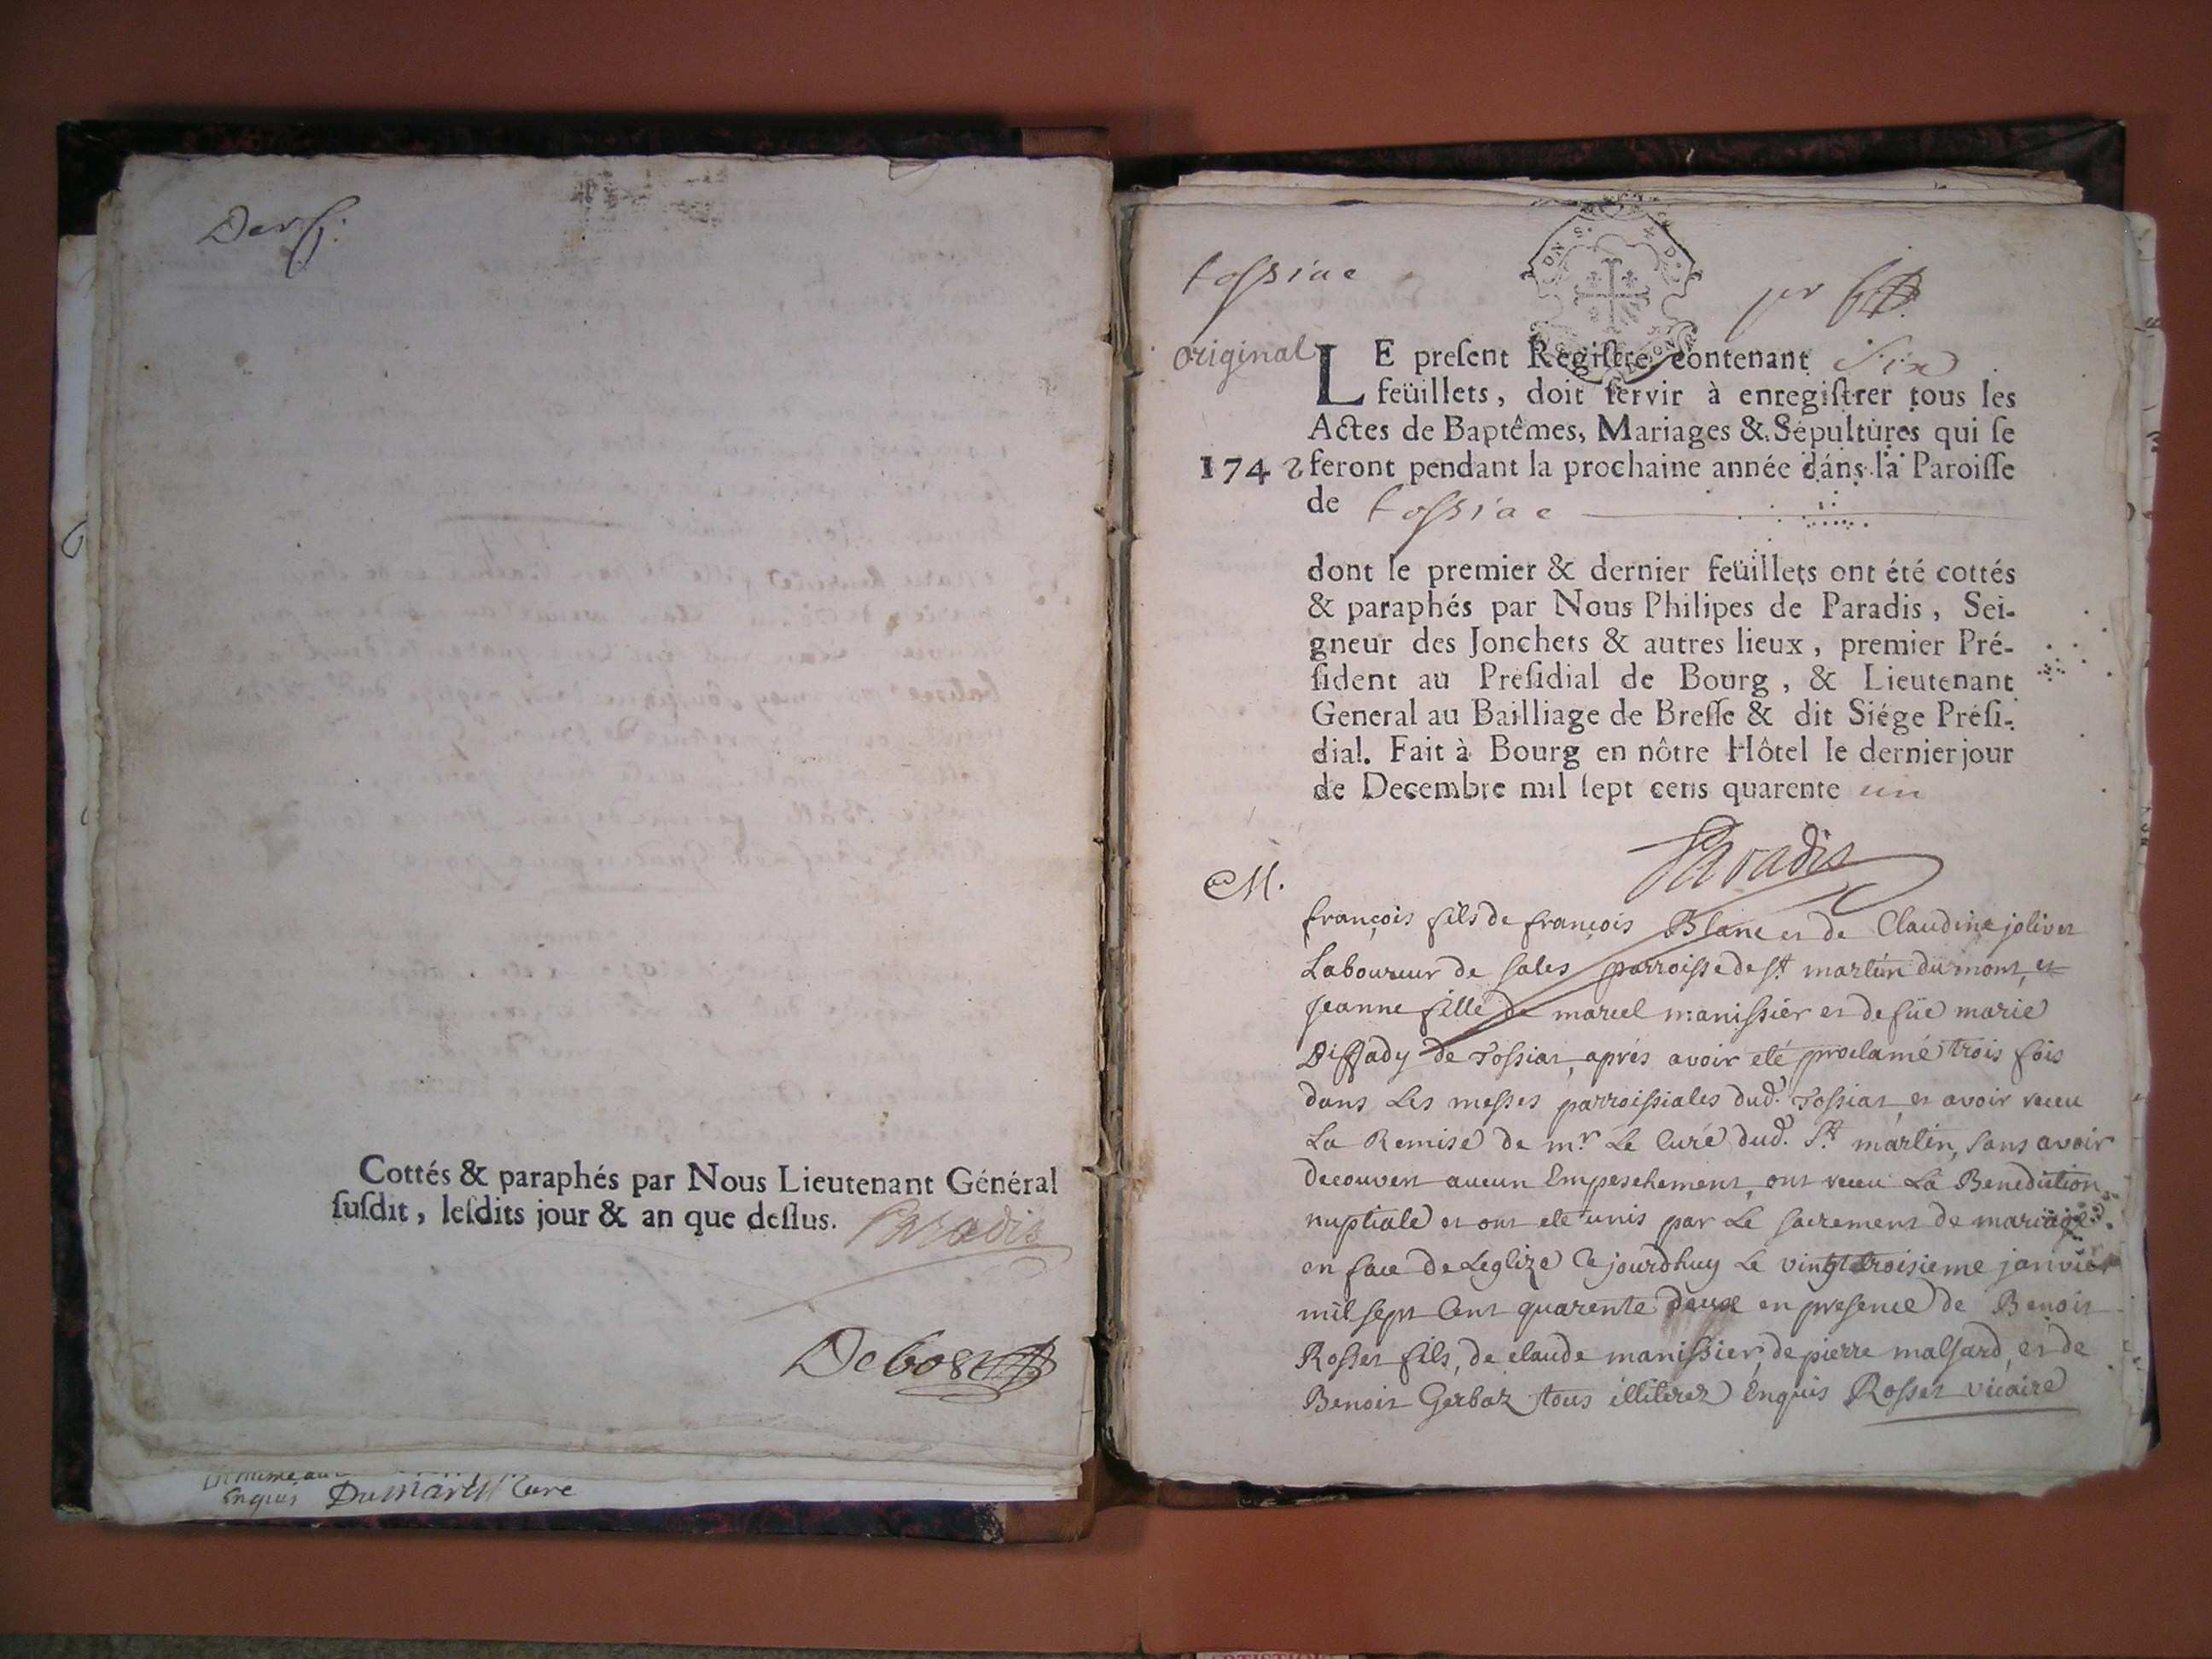 Der f.
Cottés & paraphés par Nous Lieutenant Général
ſuſdit, leſdits jour & an que deſſus. Paradis
Debost
Enquis Dumarest Curé
tossiac
per
original
LE preſent Regiſtre contenant Six
feüillets, doit ſervir à enregiſtrer tous les
Actes de Baptêmes, Mariages & Sépultures qui ſe
1742 feront pendant la prochaine année dans la Paroiſſe
de tossiac
dont le premier & dernier feüillets ont été cottés
& paraphés par Nous Philipes de Paradis, Sei-
gneur des Jonchets & autres lieux, premier Pré-
ſident au Preſidial de Bourg, & Lieutenant
General au Bailliage de Breſſe & dit Siége Préſi-
dial. Fait à Bourg en nôtre Hôtel le dernier jour
de Decembre mil ſept cens quarente un
Paradis
M.
françois fils de françois Blanc et de Claudine jolivet
Laboureur de sales parroisse de st martin du mont, et
Jeanne fille de marcel manissier et de füe marie
Diffady de Tossiat, aprés avoir eté proclamé trois fois
dans Les messes parroissiales dud. Tossiat et avoir receu
La Remise de mr Le Curé dud. St martin, sans avoir
decouvert aucun Empeschement, ont receu La Benediction
nuptiale et ont eté unis par Le sacrement de mariage
en face de Leglize Cejourdhuy Le vingt troisieme janvier
mil sept Cent quarente deux en presence de Benoit
Rosset fils, de claude manissier, de pierre malfard, et de
Benoit Gerbaz tous illiterez Enquis Rosset vicaire